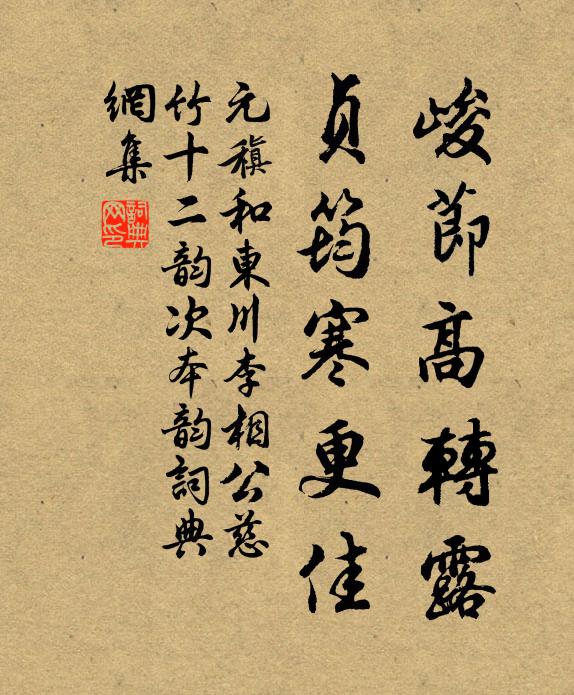 峻節高轉露
貞筠寒更佳
元稹和東川李相公慈
竹十二韵次本韵詞典
網集
詞典
网印